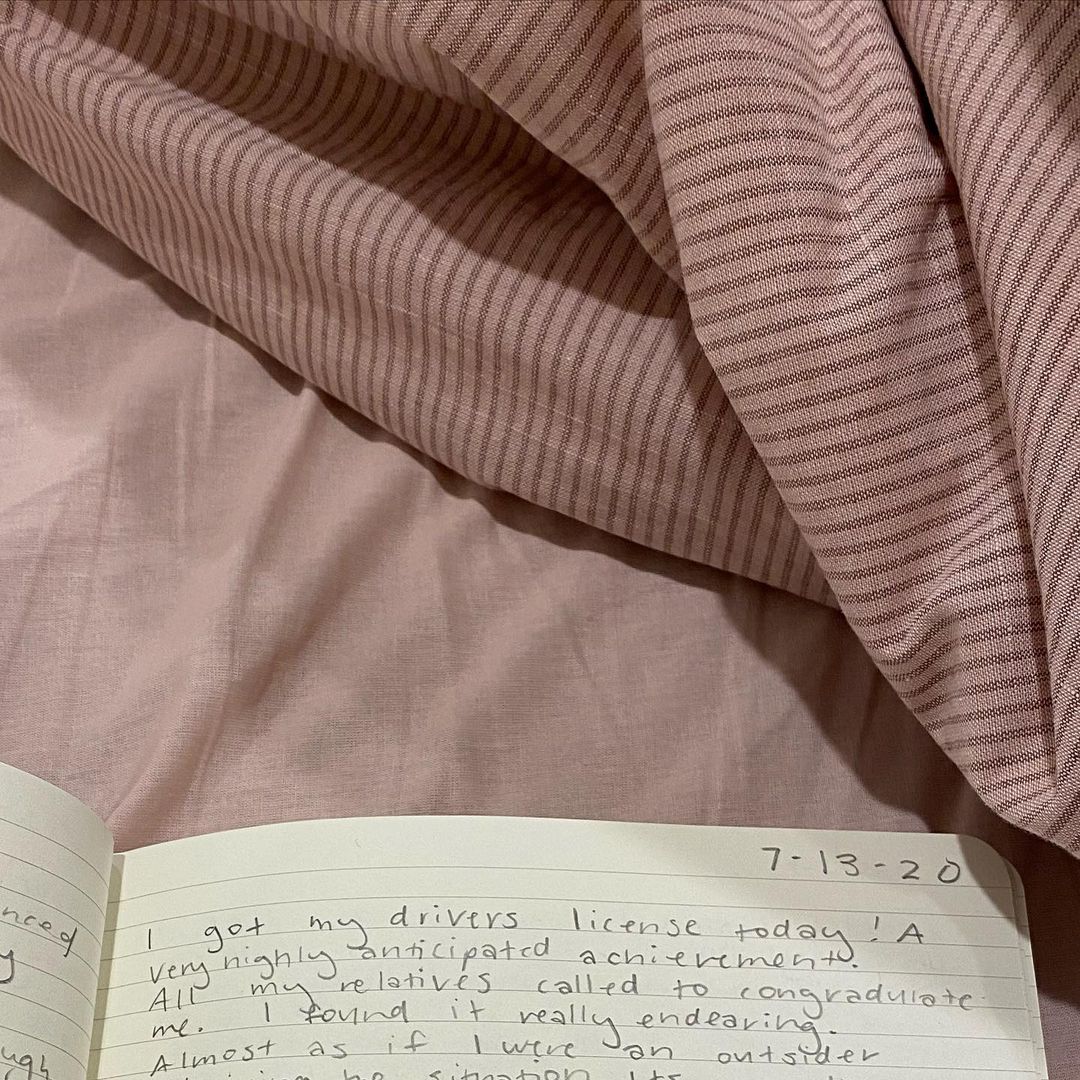 nced
y
ugh
7-13-20
I got my drivers license today! A
very highly anticipated achievement.
All my relatives called to congradulate
me. I found it really endearing.
Almost as if I were an outsider
situation